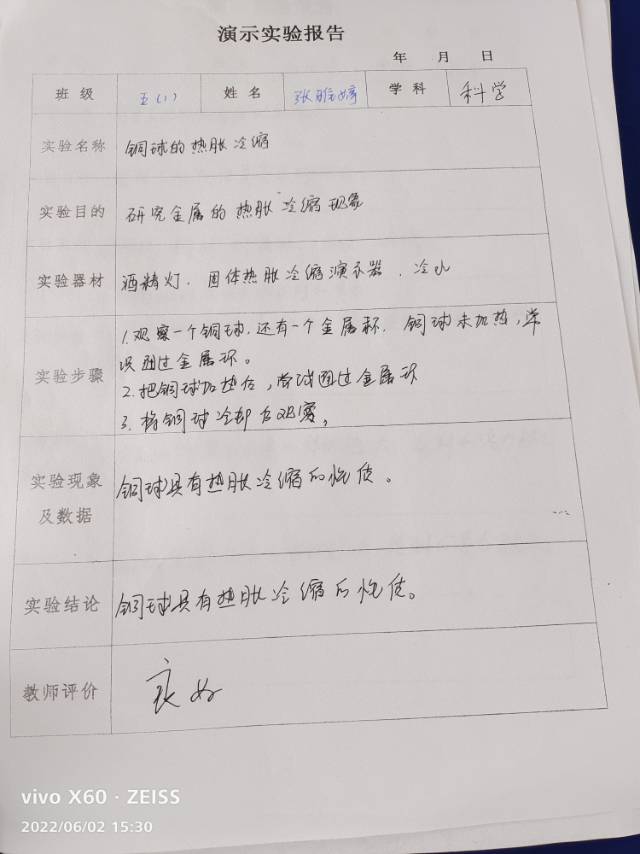 演示实验报告
年 月 日
班级 五(1) 姓名 张 婷 学科 科学
实验名称 铜球的热胀冷缩
实验目的 研究金属的热胀冷缩现象
实验器材 酒精灯、固体热胀冷缩演示器、冷水
实验步骤
1.观察一个铜球,还有一个金属环,铜球未加热,尝
试通过金属环。
2.把铜球加热后,尝试通过金属环
3.将铜球冷却后观察,
实验现象
及数据
铜球具有热胀冷缩的性质。
实验结论 铜球具有热胀冷缩的性质。
教师评价 良好
vivo X60 · ZEISS
2022/06/02 15:30